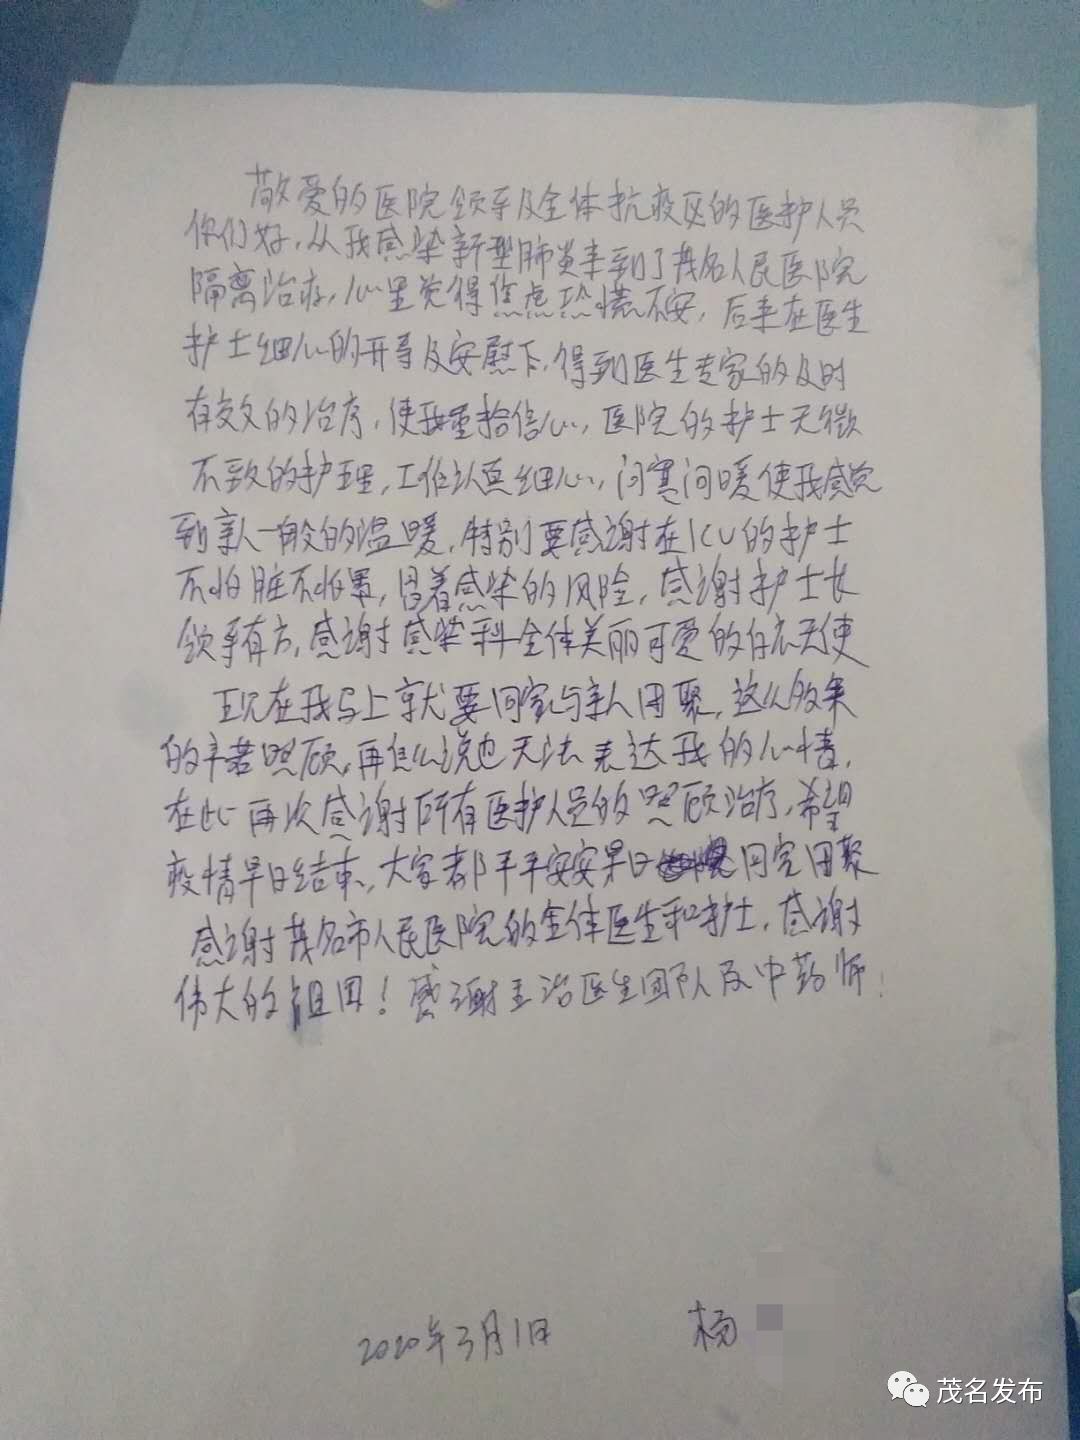 敬爱的医院领导及全体抗疫区的医护人员
你们好,从我感染新型肺炎来到了茂名人民医院
隔离治疗,心里觉得焦虑恐慌不安,后来在医生
护士细心的开导及安慰下,得到医生专家的及时
有效的治疗,使我重拾信心,医院的护士无微
不致的护理,工作认真细心,问寒问暖使我感觉
到亲人一般的温暖,特别要感谢在ICU的护士
不怕脏不怕累,冒着感染的风险,感谢护士长
领导有方,感谢感染科全体美丽可爱的白衣天使
现在我马上就要回家与亲人团聚,这么多天来
的辛苦照顾,再怎么说也无法表达我的心情,
在此再次感谢所有医护人员的照顾治疗,希望
疫情早日结束,大家都平平安安早日回家团聚
感谢茂名市人民医院的全体医生和护士,感谢
伟大的祖国!感谢主治医生团队及中药师!
2020年3月1日 杨
茂名发布